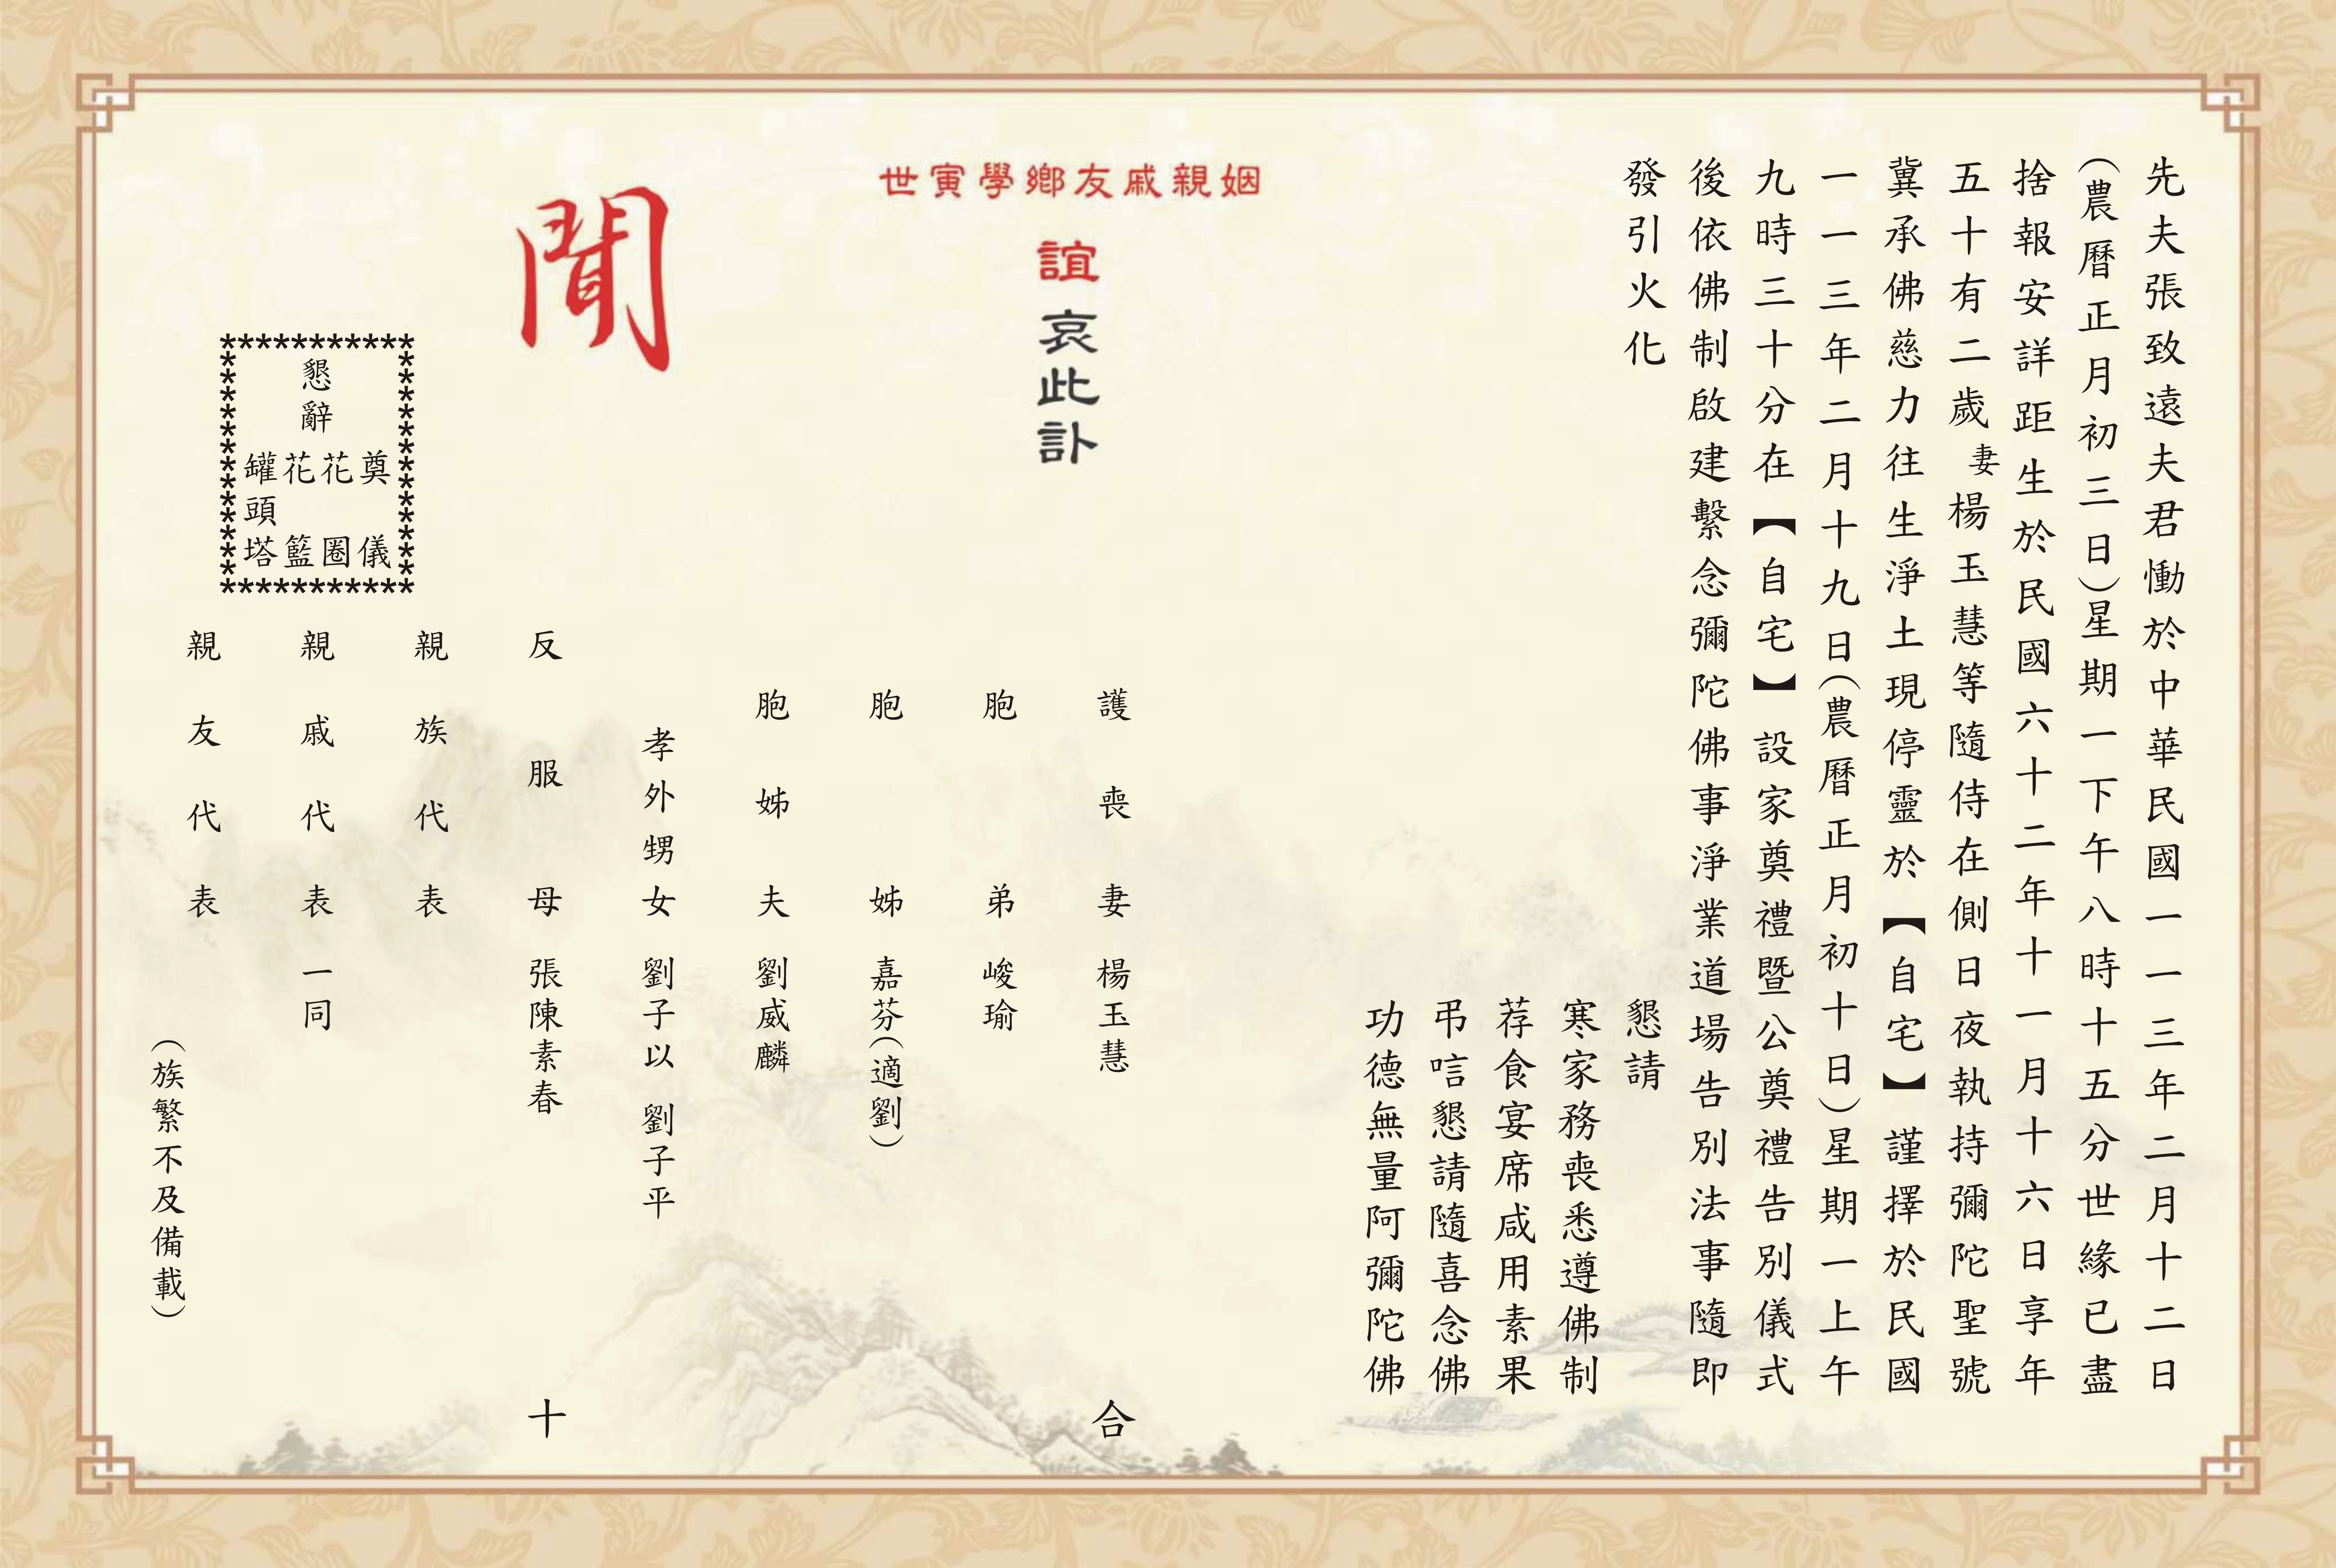 先夫張致遠夫君慟於中華民國一一三年二月十二日
（農曆正月初三日）星期一下午八時十五分世緣已盡
捨報安詳距生於民國六十二年十一月十六日享年
五十有二歲妻楊玉慧等隨侍在側日夜執持彌陀聖號
冀承佛慈力往生淨土現停靈於【自宅】謹擇於民國
一一三年二月十九日（農曆正月初十日）星期一上午
九時三十分在【自宅】設家奠禮暨公奠禮告別儀式
後依佛制啟建繫念彌陀佛事淨業道場告別法事隨即
發引火化
懇請
寒家務喪悉遵佛制
荐食宴席咸用素果
弔唁懇請隨喜念佛
功德無量阿彌陀佛
姻親戚友鄉學寅世
誼哀此訃
聞
護喪妻 楊玉慧 合
胞弟 峻瑜
胞姊 嘉芬（適劉）
胞姊夫 劉威麟
孝外甥女 劉子以 劉子平
反服母 張陳素春 十
親族代表
親戚代表 一同
親友代表
（族繁不及備載）
懇辭
奠儀
花圈
花籃
罐頭塔